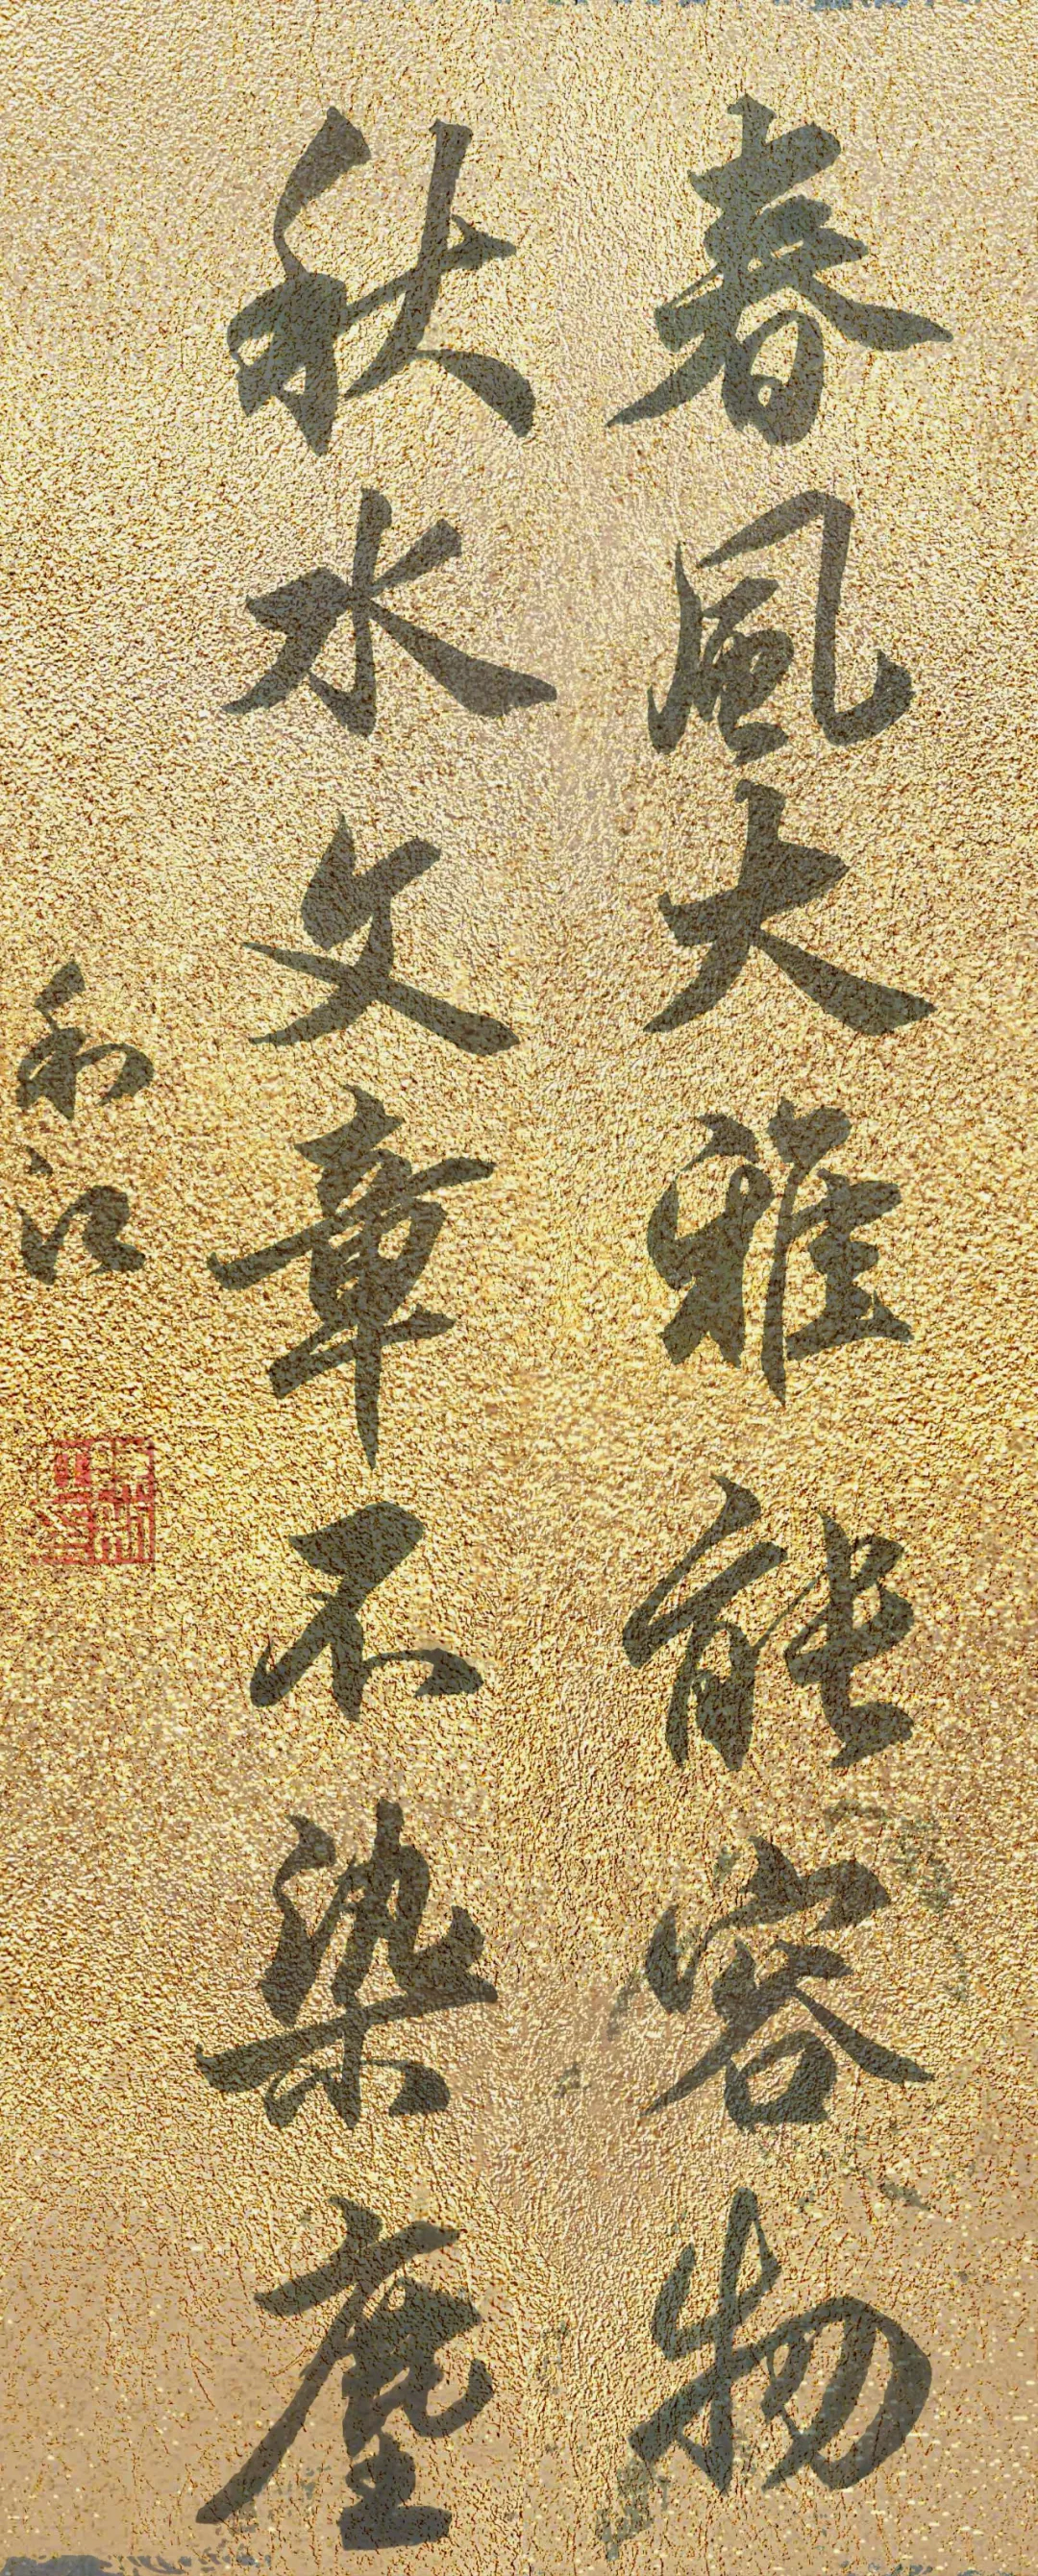 春風大雅能容物
秋水文章不染塵
利江